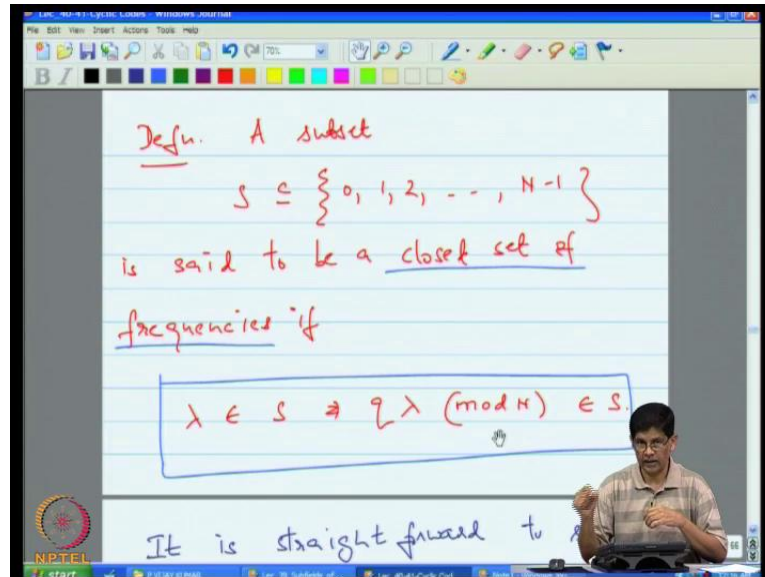 Lec_40-41-Cyclic Codes - Windows Journal
File Edit View Insert Actions Tools Help
70%
B I
Defn. A subset
S ⊆ { 0, 1, 2, ..., N-1 }
is said to be a closet set of
frequencies if
λ ∈ S ⇒ q λ (mod N) ∈ S.
It is straight forward to
NPTEL
start